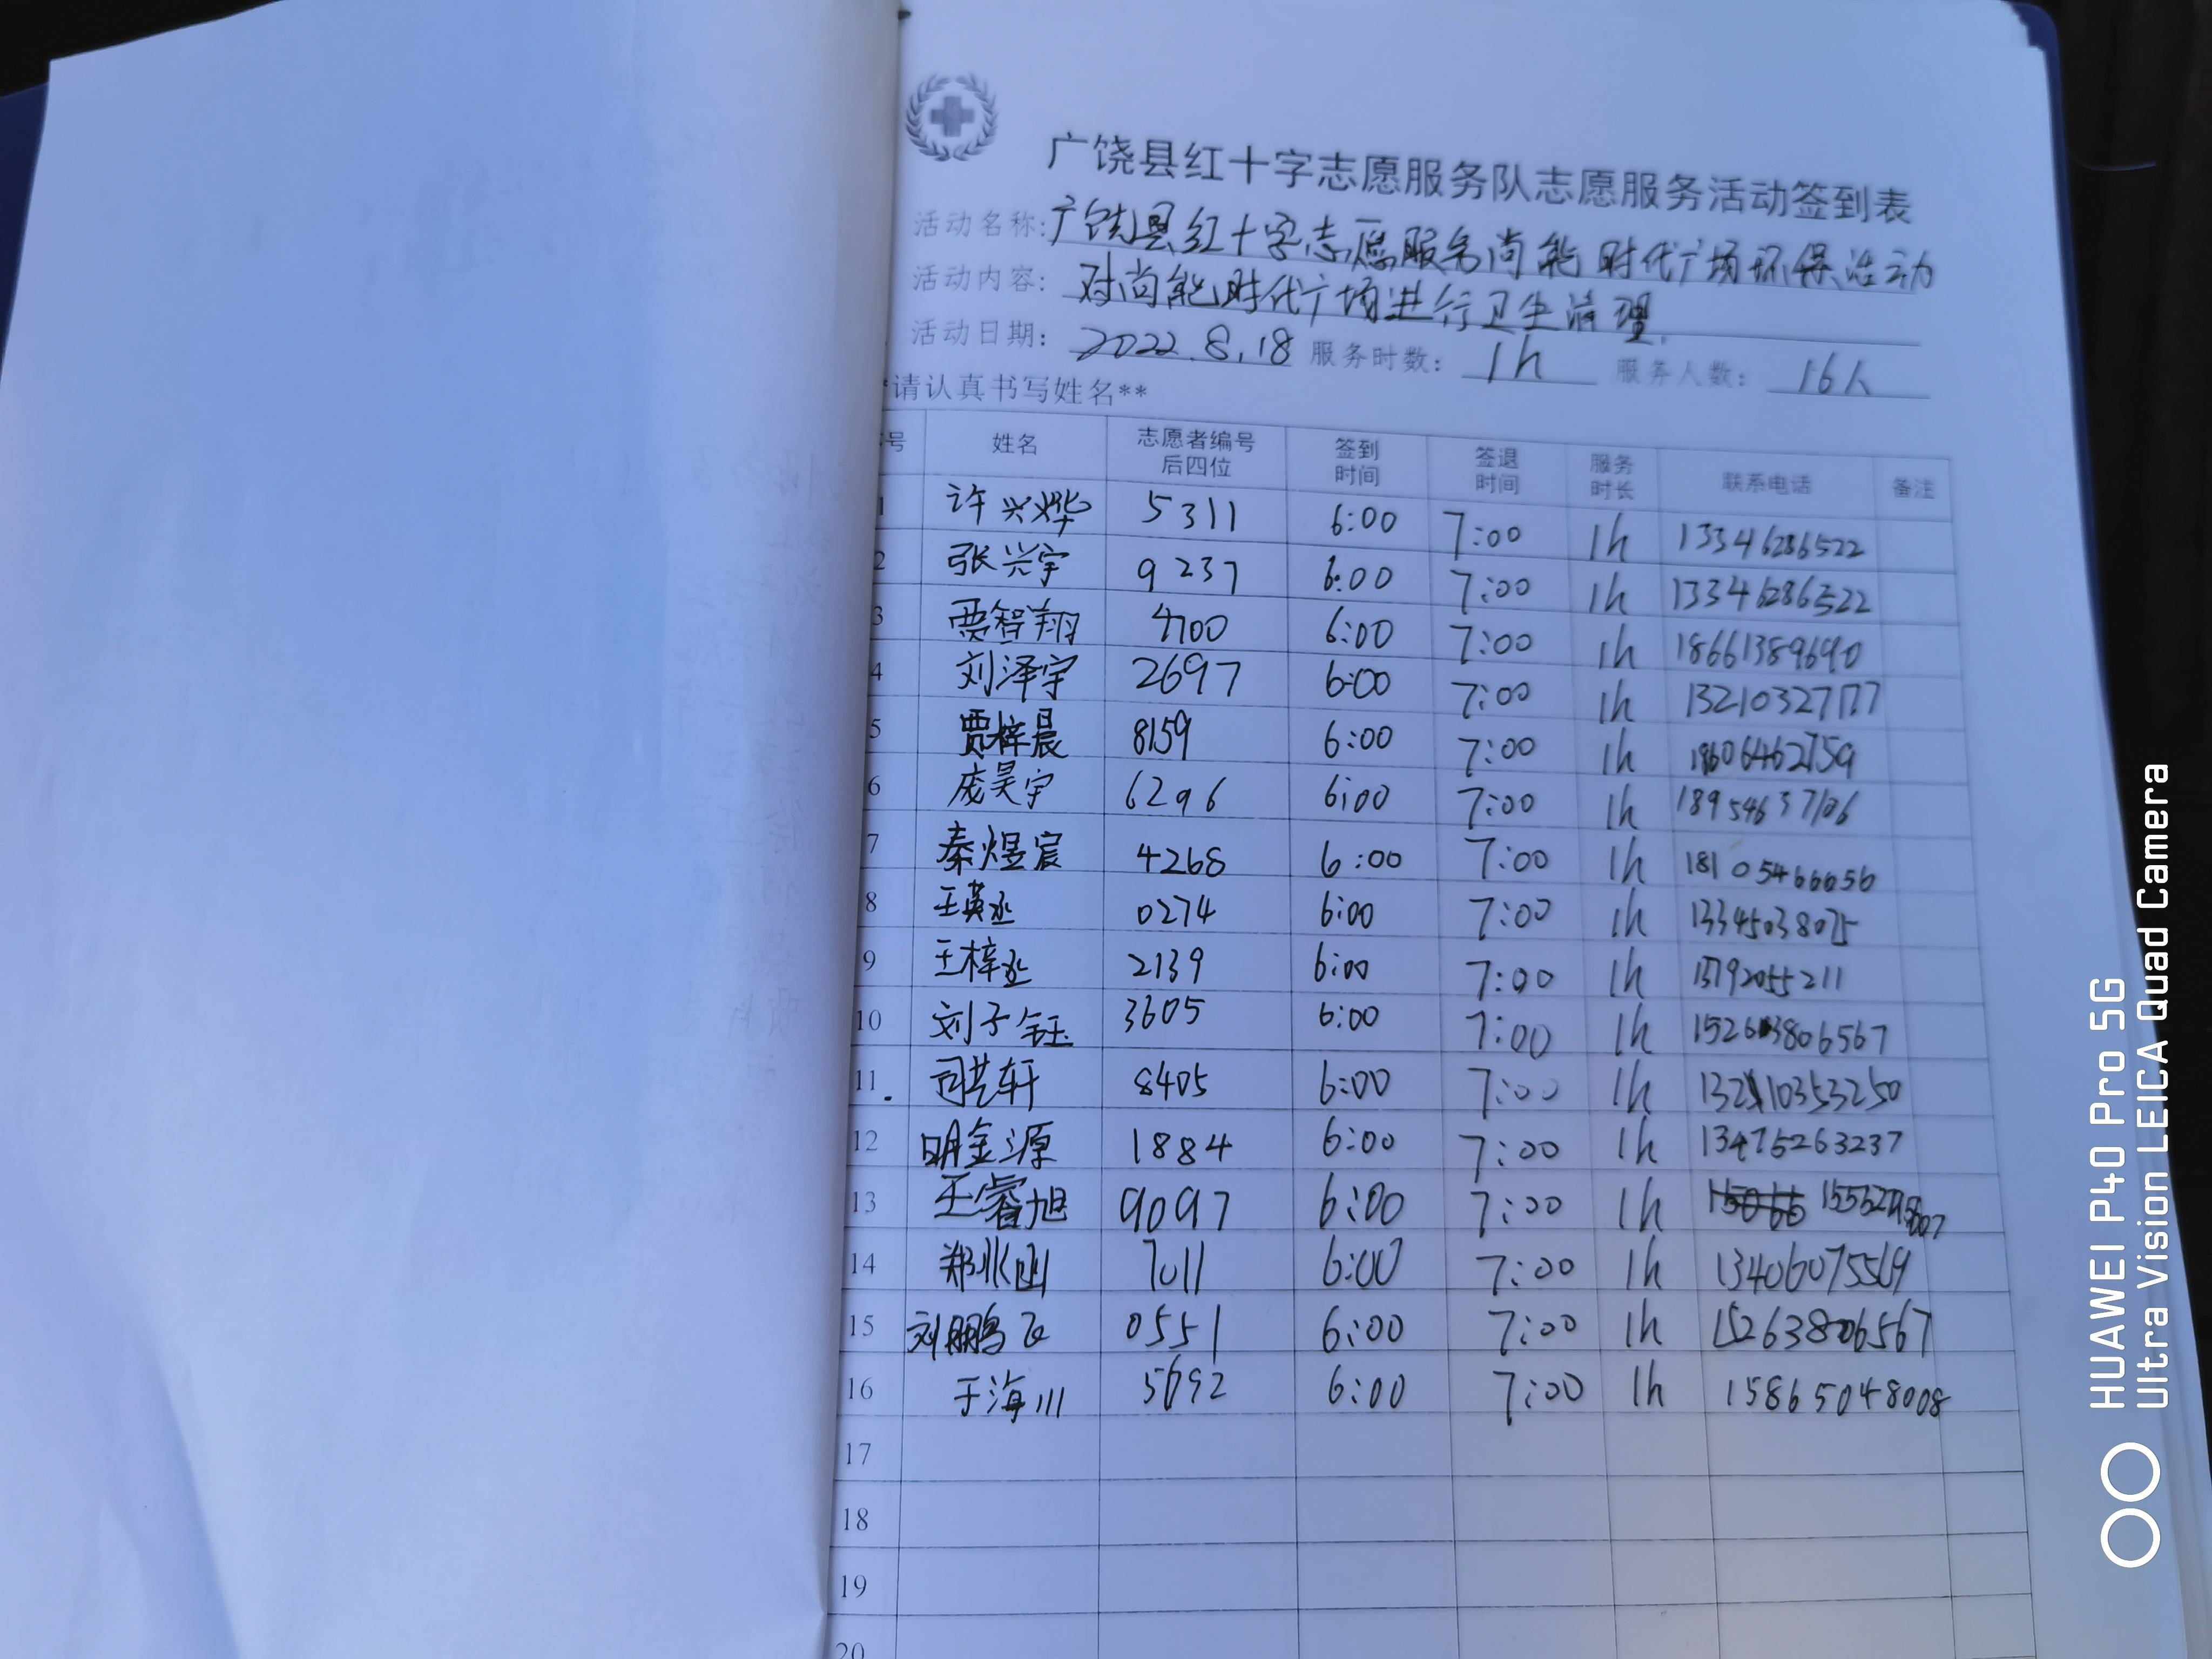 广饶县红十字志愿服务队志愿服务活动签到表
活动名称:广饶县红十字志愿服务尚能时代广场环保活动
活动内容: 对尚能时代广场进行卫生清理.
活动日期: 2022.8.18 服务时数: 1h 服务人数: 16人
*请认真书写姓名**
号 姓名 志愿者编号后四位 签到时间 签退时间 服务时长 联系电话 备注
1 许兴烨 5311 6:00 7:00 1h 13346286522
2 张兴宇 9237 6:00 7:00 1h 13346286522
3 贾智翔 4700 6:00 7:00 1h 18661389690
4 刘泽宇 2697 6:00 7:00 1h 13210327177
5 贾梓晨 8159 6:00 7:00 1h 18606462759
6 庞昊宇 6296 6:00 7:00 1h 18954637106
7 秦煜宸 4268 6:00 7:00 1h 18105466656
8 王英丞 0274 6:00 7:00 1h 13345038075
9 王梓丞 2139 6:00 7:00 1h 15792055211
10 刘子钰 3605 6:00 7:00 1h
11 司艺轩 8405 6:00 7:00 1h
12 明金源 1884 6:00 7:00 1h 13475263237
13 王睿旭 9097 6:00 7:00 1h
14 郑兆函 7011 6:00 7:00 1h 13406075569
15 刘鹏飞 0551 6:00 7:00 1h 15263806567
16 于海川 5692 6:00 7:00 1h 15865048008
17
18
19
20
HUAWEI P40 Pro 5G
Ultra Vision LEICA Quad Camera